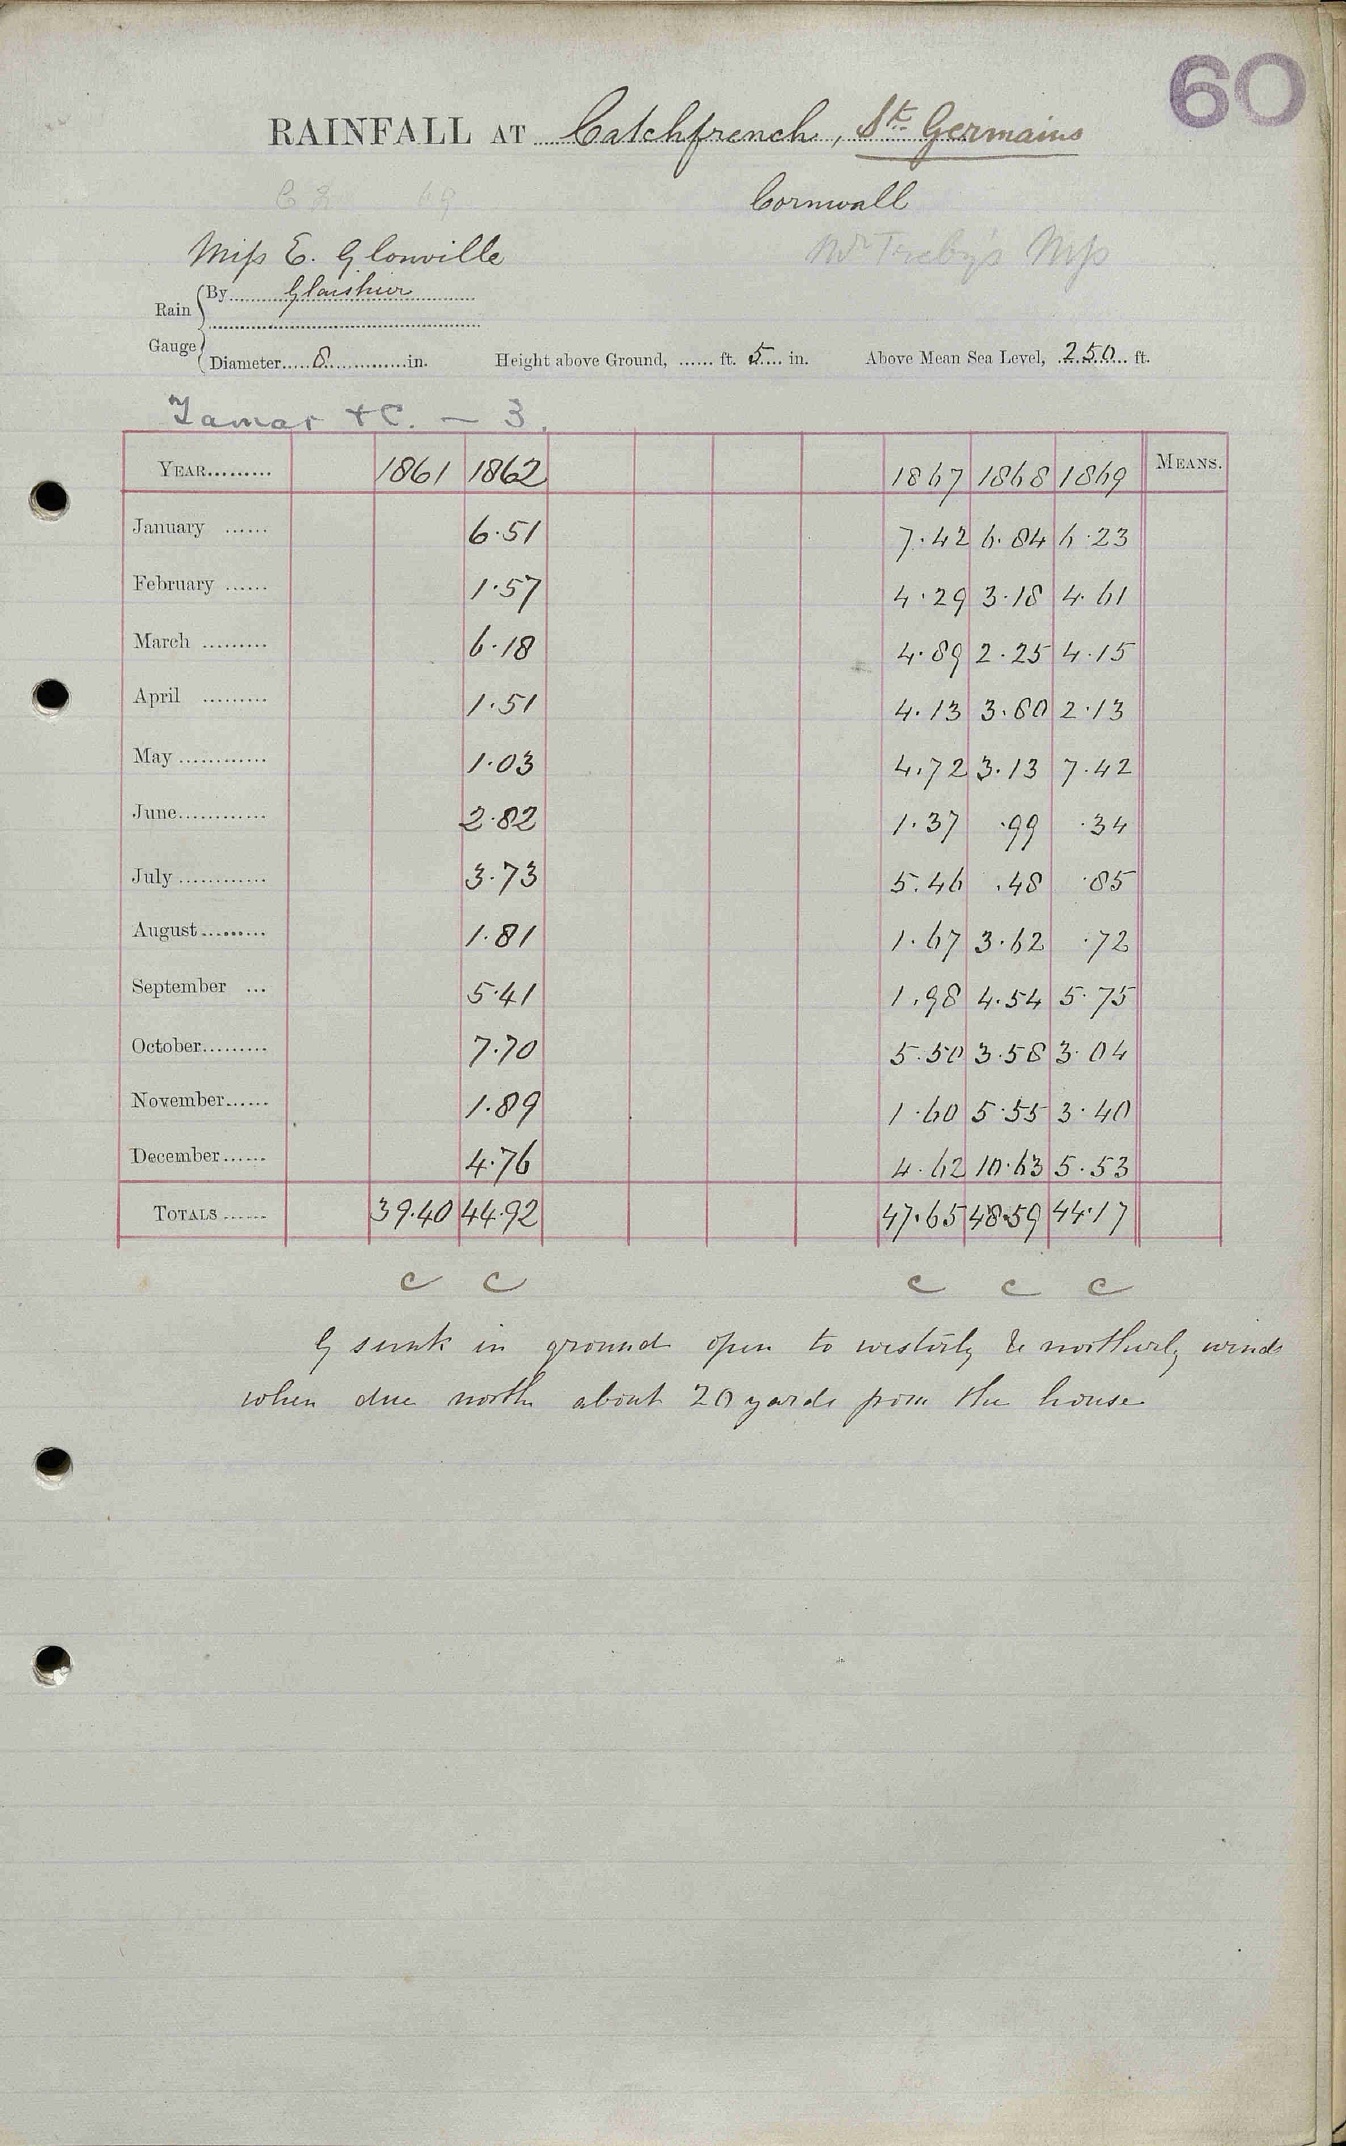 60
RAINFALL AT Catchfrench, St. Germains
Cornwall
Miss E. Glanville
Mr Treby's MSS
Rain Gauge
By Glaisher
Diameter 8 in. Height above Ground, ...... ft. 5 in. Above Mean Sea Level, 250 ft.
Tamar + C. — 3.
YEAR 1861 1862 1867 1868 1869 MEANS.
January 6.51 7.42 6.84 6.23
February 1.57 4.29 3.18 4.61
March 6.18 4.89 2.25 4.15
April 1.51 4.13 3.80 2.13
May 1.03 4.72 3.13 7.42
June 2.82 1.37 .99 .34
July 3.73 5.46 .48 .85
August 1.81 1.67 3.62 .72
September 5.41 1.98 4.54 5.75
October 7.70 5.50 3.58 3.04
November 1.89 1.60 5.55 3.40
December 4.76 4.62 10.63 5.53
TOTALS 39.40 44.92 47.65 48.59 44.17
c c c c c
G sunk in ground open to westerly & northerly winds
when due north about 20 yards from the house